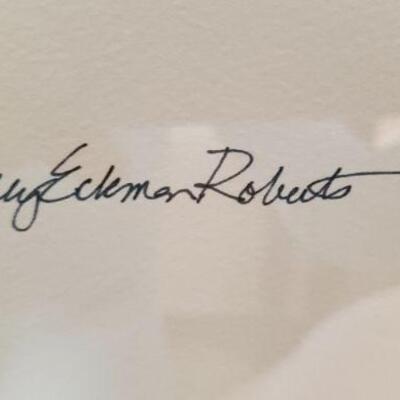 Eckman Roberts